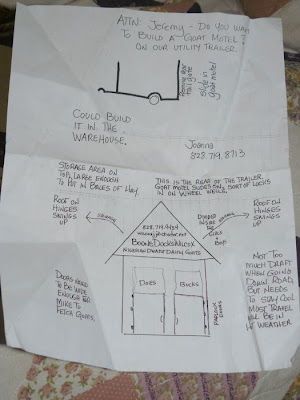 ATTN: Jeremy - Do you want
to Build a Goat Motel?
on our utility trailer.
Remove Rear
tail gate
slide in
goat motel
Could Build
it in the
warehouse.
Joanna
828.719.8713
Storage area on
top, large enough
to put in bales of hay,
This is the rear of the trailer.
Goat motel slides on, sort of locks
in on wheel wells.
Roof on
hinges
swings
up
Divided
inside
for
&
bags
Roof on
hinges
swings
up
828.719.9454
Nigerian Dwarf Dairy Goats
Does
Bucks
Doors need
to be wide
enough for
Mike to
fetch goats.
Not too
much draft
when going
down road,
but needs
to stay cool
most travel
will be in
weather.